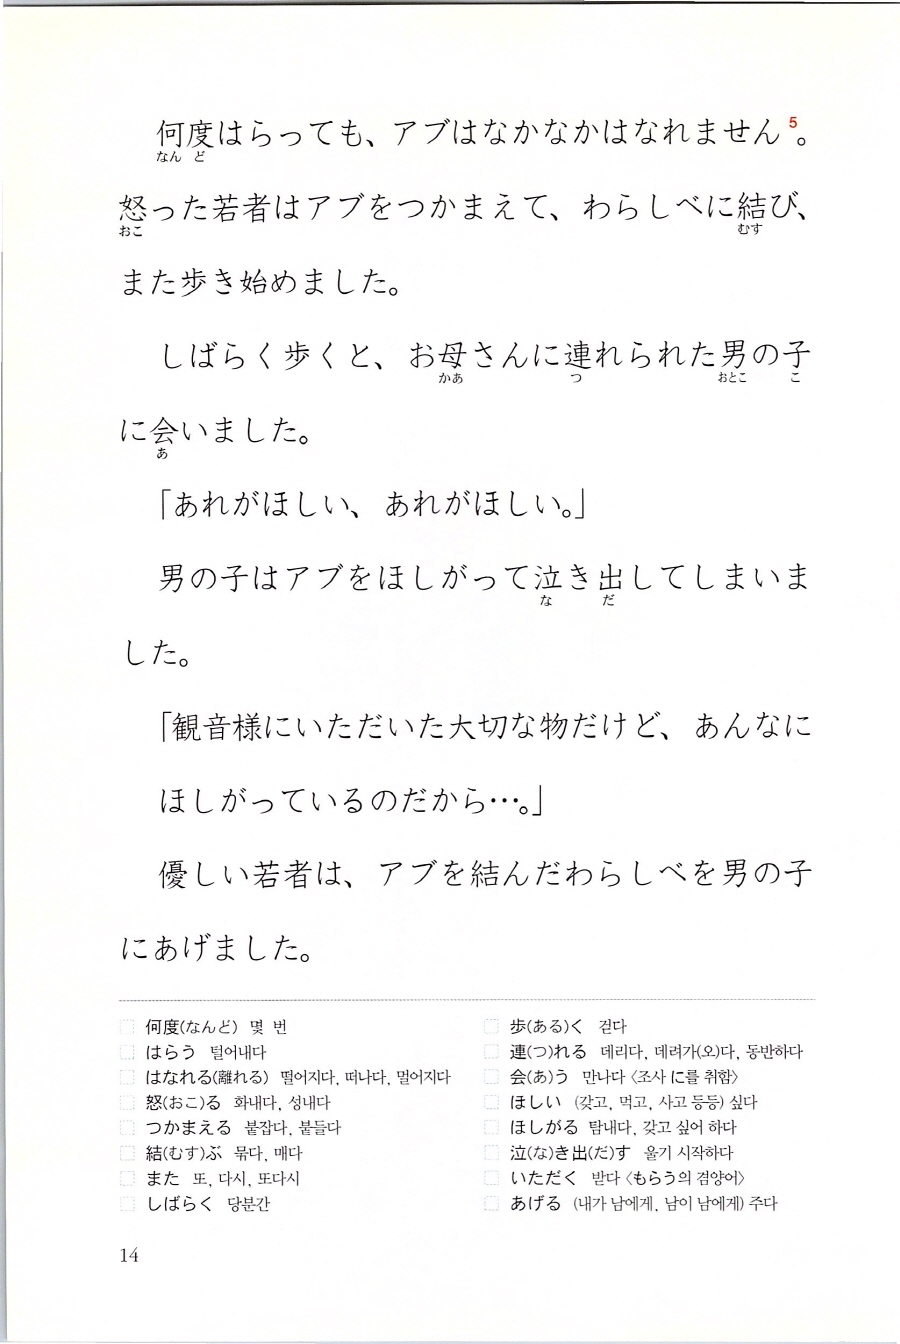 何度はらっても、アブはなかなかはなれません5。
なん ど
怒った若者はアブをつかまえて、わらしべに結び、
おこ むす
また歩き始めました。
しばらく歩くと、お母さんに連れられた男の子
かあ つ おとこ こ
に会いました。
あ
「あれがほしい、あれがほしい。」
男の子はアブをほしがって泣き出してしまいま
な だ
した。
「観音様にいただいた大切な物だけど、あんなに
ほしがっているのだから…。」
優しい若者は、アブを結んだわらしべを男の子
にあげました。
何度(なんど) 몇 번
はらう 털어내다
はなれる(離れる) 떨어지다, 떠나다, 멀어지다
怒(おこ)る 화내다, 성내다
つかまえる 붙잡다, 붙들다
結(むす)ぶ 묶다, 매다
また 또, 다시, 또다시
しばらく 당분간
歩(ある)く 걷다
連(つ)れる 데리다, 데려가(오)다, 동반하다
会(あ)う 만나다 〈조사 に를 취함〉
ほしい (갖고, 먹고, 사고 등등) 싶다
ほしがる 탐내다, 갖고 싶어 하다
泣(な)き出(だ)す 울기 시작하다
いただく 받다 〈もらう의 겸양어〉
あげる (내가 남에게, 남이 남에게) 주다
14